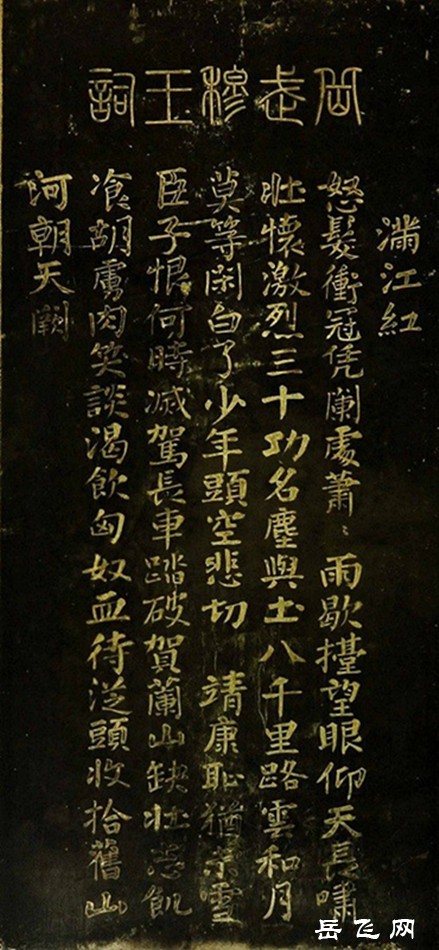 岳武穆王詞
滿江紅
怒髮衝冠凭闌處蕭〻雨歇擡望眼仰天長嘯
壯懷激烈三十功名塵與土八千里路雲和月
莫等閑白了少年頭空悲切 靖康恥猶未雪
臣子恨何時滅駕長車踏破賀蘭山缺壯志飢
飡胡虜肉笑談渴飲匈奴血待從頭收拾舊山
河朝天闕
岳飞网